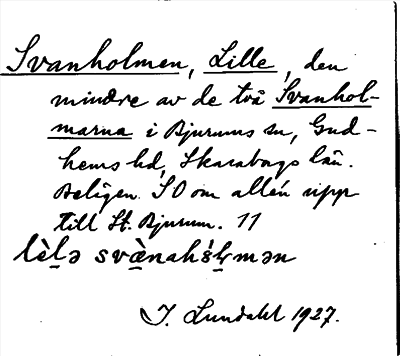 Svanholmen, Lille, den
mindre av de två Svanhol-
marna i Bjurums sn, Gud-
hems hd, Skarabogs län.
Belägen SO om allén upp
till St. Bjurum. 11
I. Lundahl 1927.